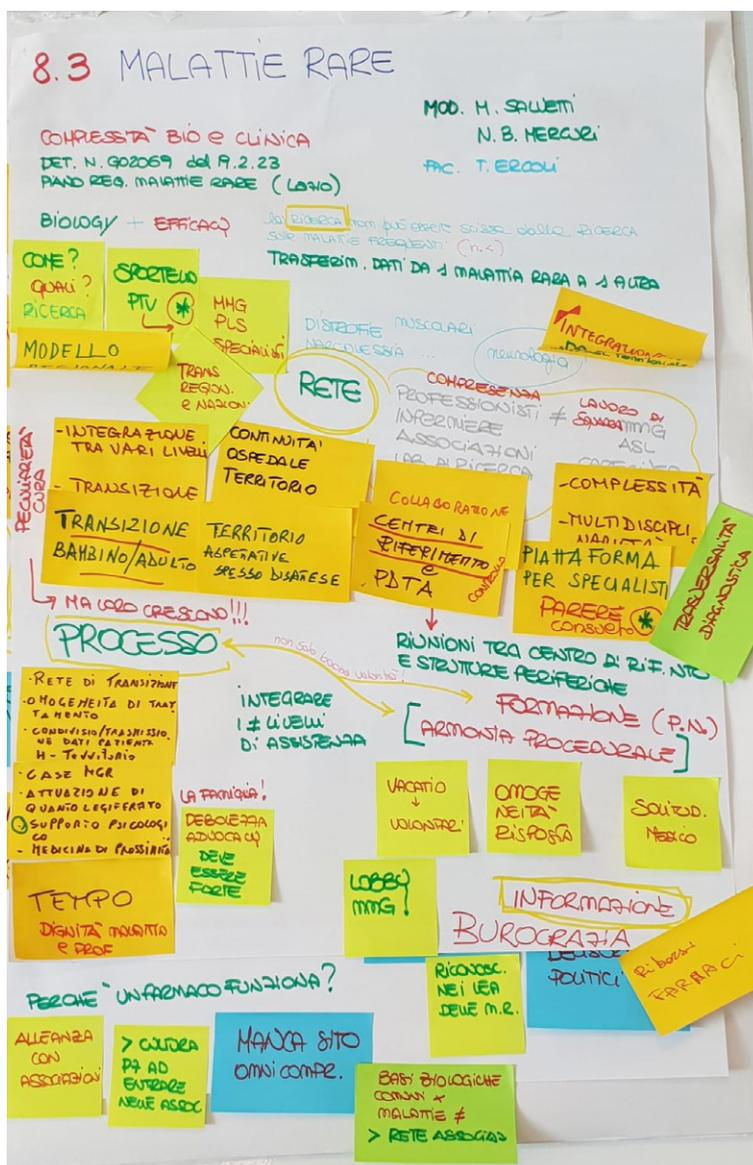 8.3 MALATTIE RARE
MOD. M. SALVETTI
N. B. MERCURI
FAC. T. ERCOLI
COMPLESSITÀ BIO e CLINICA
DET. N. G02069 del 19.2.23
PIANO REG. MALATTIE RARE (LAZIO)
BIOLOGY + EFFICACY
la RICERCA non può essere scissa dalla RICERCA
SULLE MALATTIE FREQUENTI (n.<)
TRASFERIM. DATI DA 1 MALATTIA RARA A 1 ALTRA
COME?
QUALI?
RICERCA
SPORTELLO
PTV *
MMG
PLS
SPECIALISTI
MODELLO
TRANS
REGION.
e NAZION.
DISTROFIE MUSCOLARI
NARCOLESSIA ...
neurologia
INTEGRAZIONE
RETE
COMPRESENZA
PROFESSIONISTI ≠
INFERMIERE
ASSOCIAZIONI
LAB DI RICERCA
LAVORO DI
SQUADRA
MMG
ASL
PECULIARETÀ
CURA
- INTEGRAZIONE
TRA VARI LIVELLI
- TRANSIZIONE
CONTINUITA'
OSPEDALE
TERRITORIO
TRANSIZIONE
BAMBINO/ADULTO
TERRITORIO
ASPETTATIVE
SPESSO DISATTESE
COLLABORAZIONE
CENTRI DI
RIFERIMENTO
e
PDTA
- COMPLESSITÀ
- MULTIDISCIPLI
NARIETÀ
PIATTAFORMA
PER SPECIALISTI
PARERE
CONSULTO *
TRASVERSALITÀ
DIAGNOSTICA
MA LORO CRESCONO!!!
PROCESSO
non solo buona volontà!
RIUNIONI TRA CENTRO DI RIF.NTO
E STRUTTURE PERIFERICHE
INTEGRARE
I ≠ LIVELLI
DI ASSISTENZA
FORMAZIONE (P.N.)
[ARMONIA PROCEDURALE]
· RETE DI TRANSIZIONE
· OMOGENEITA DI TRAT
TAMENTO
· CONDIVISIO/TRASMISSIO
NE DATI PAZIENTI
H - Territorio
· CASE MGR
· ATTUAZIONE DI
QUANTO LEGIFERATO
SUPPORTO PSICOLOGI
CO
- MEDICINA DI PROSSIMITÀ
TEMPO
DIGNITÀ MALATTIA
e PROF
LA FAMIGLIA!
DEBOLEZZA
ADVOCACY
DEVE
ESSERE
FORTE
VACATIO
VOLONTARI
OMOGE
NEITÀ
RISPOSTA
SOLITUD.
MEDICO
LOBBY
MMG!
INFORMAZIONE
BUROCRAZIA
RICONOSC.
NEI LEA
DELLE M.R.
POLITICI
RIBORSI
FARMACI
PERCHÉ UN FARMACO FUNZIONA?
ALLEANZA
CON
ASSOCIAZIONI
> CULTURA
PZ AD
ENTRARE
NELLE ASSOC
MANCA SITO
OMNICOMPR.
BASI BIOLOGICHE
COMUNI x
MALATTIE ≠
> RETE ASSOCIAZ